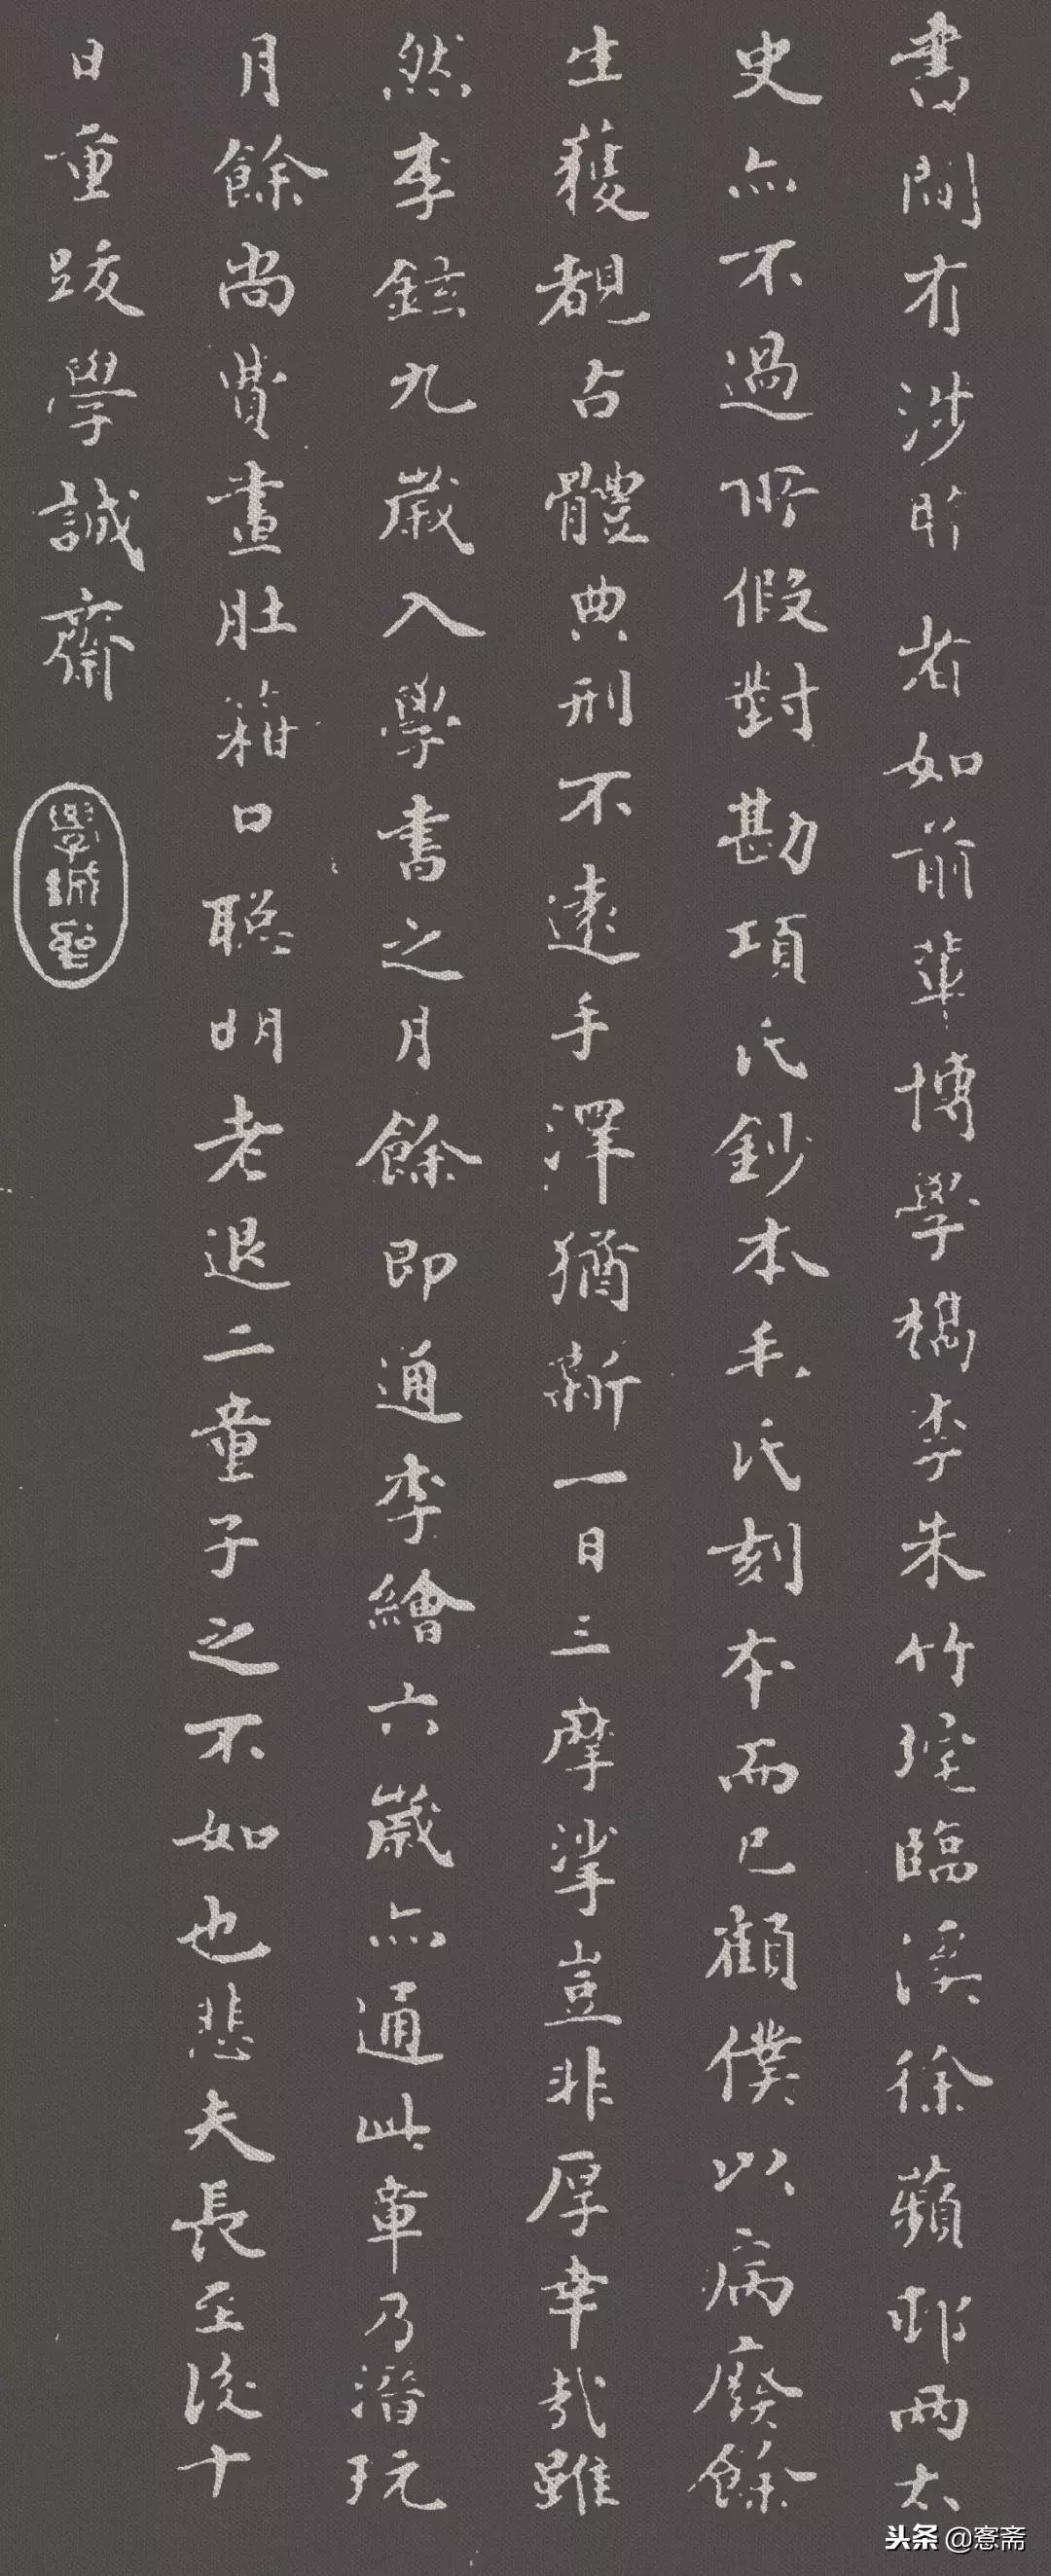 書間有涉所者如前輩博學檇李朱竹垞臨溪徐蘋邨兩太
史亦不過所假對勘項氏鈔本毛氏刻本而已顧僕以病廢餘
生獲覩古體典刑不遠手澤猶新一日三摩挲豈非厚幸哉雖
然李鉉九歲入學書之月餘即通李繪六歲亦通此章乃潛玩
月餘尚費畫肚籍口聰明老退二童子之不如也悲夫長至後十
日重跋學誠齋
頭条 @窓斋